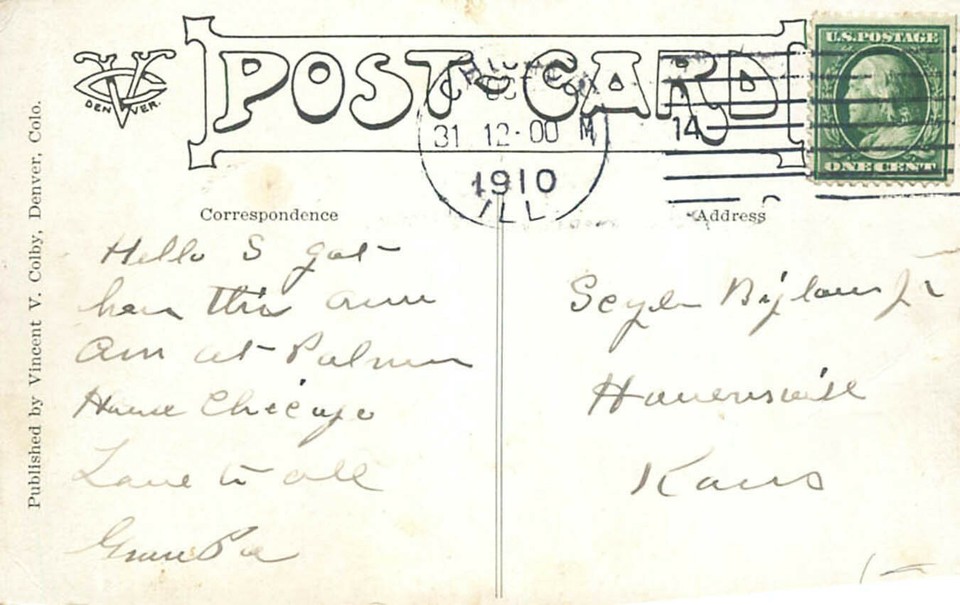 POST CARD
DENVER.
U.S. POSTAGE
ONE CENT
CHICAGO
31 12-00 M
14
1910
ILL.
Published by Vincent V. Colby, Denver, Colo.
Correspondence
Hello S got
here this am
Am at Palmer
House Chicago
Love to all
GranPa
Address
Jr
Havensville
Kans